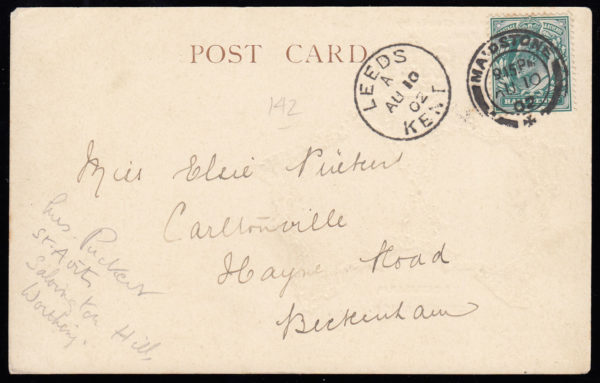 POST CARD
LEEDS
A
AU 10
02
KENT
MAIDSTONE
8 45 PM
AU 10
02
142
Miss Elsie
Carltonville
Hayne Road
Beckenham
Mrs. Puckers
St.
Salvington Hill,
Worthing.